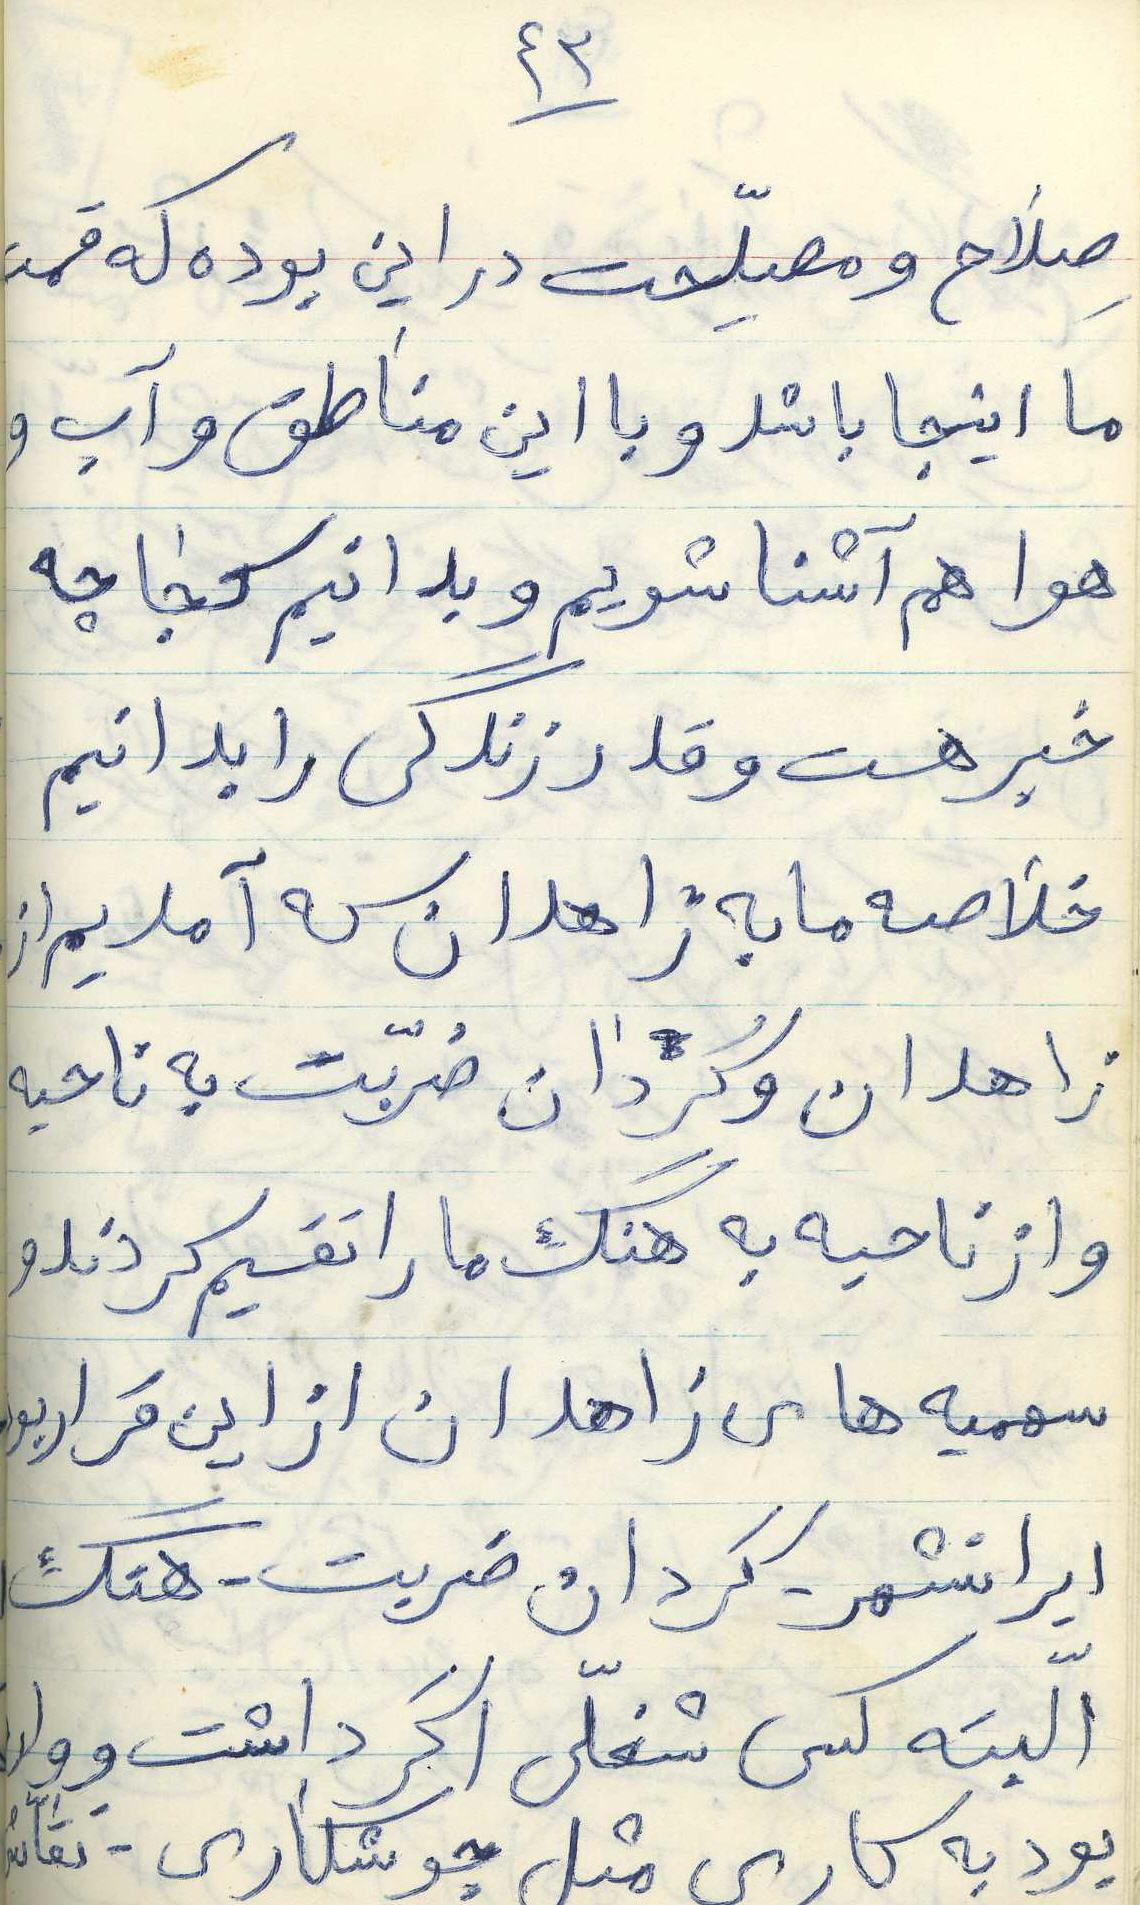 ٤٣
صِلاح و مصلّحِت در این بوده که قسمت
ما اینجا باشد و با این مناطق و آب و
هوا هم آشنا شویم و بدانیم کجا چه
خبر هست و قدر زندگی را بدانیم
خلاصه ما به زاهدان که آمدیم از
زاهدان و گُردان ضربّت به ناحیه
و از ناحیه به هنگ ما را تقسیم کردند و
سهمیه های زاهدان از این قرار بود
ایرانشهر - گردان ضربت - هنگ
الّبته کسی شغلّی اگر داشت و وارد
بود به کاری مثل جوشکاری - نقّاش